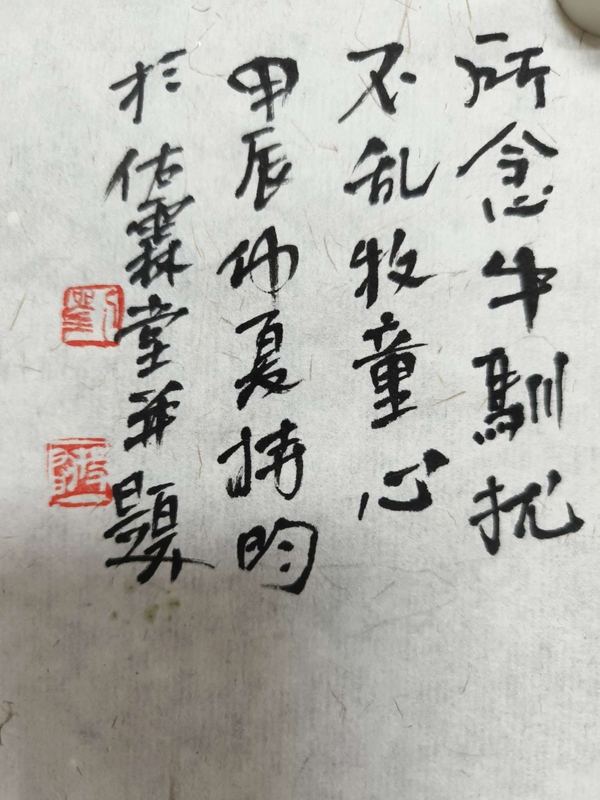 所念牛馴扰
不乱牧童心
甲辰仲夏 昀
於佑霖堂並題